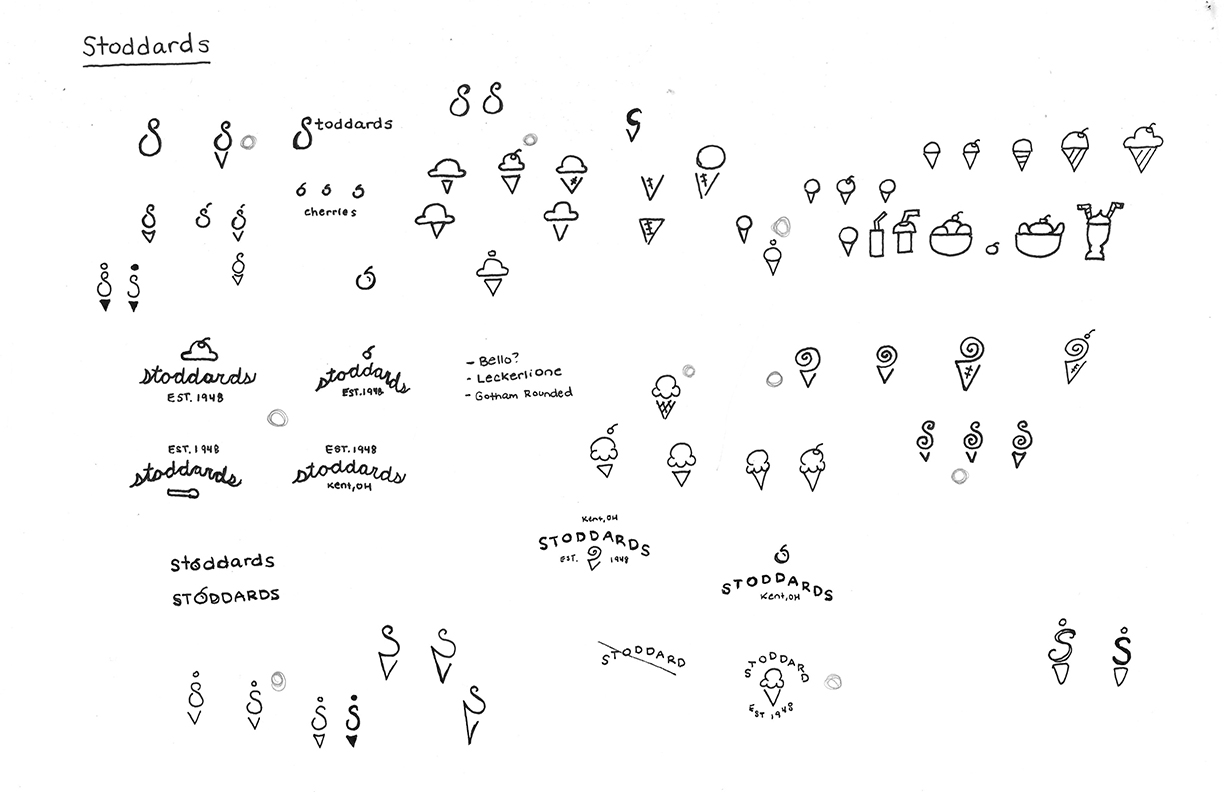 Stoddards
S S
S
S
Stoddards
cherries
stoddards
EST. 1948
stoddards
EST. 1948
- Bello?
- Leckerlione
- Gotham Rounded
EST. 1948
stoddards
EST. 1948
stoddards
Kent, OH
Kent, OH
STODDARDS
EST. 1948
stoddards
STODDARDS
STODDARDS
Kent, OH
STODDARD
STODDARD
EST 1948
S S
S S
S
S S S S